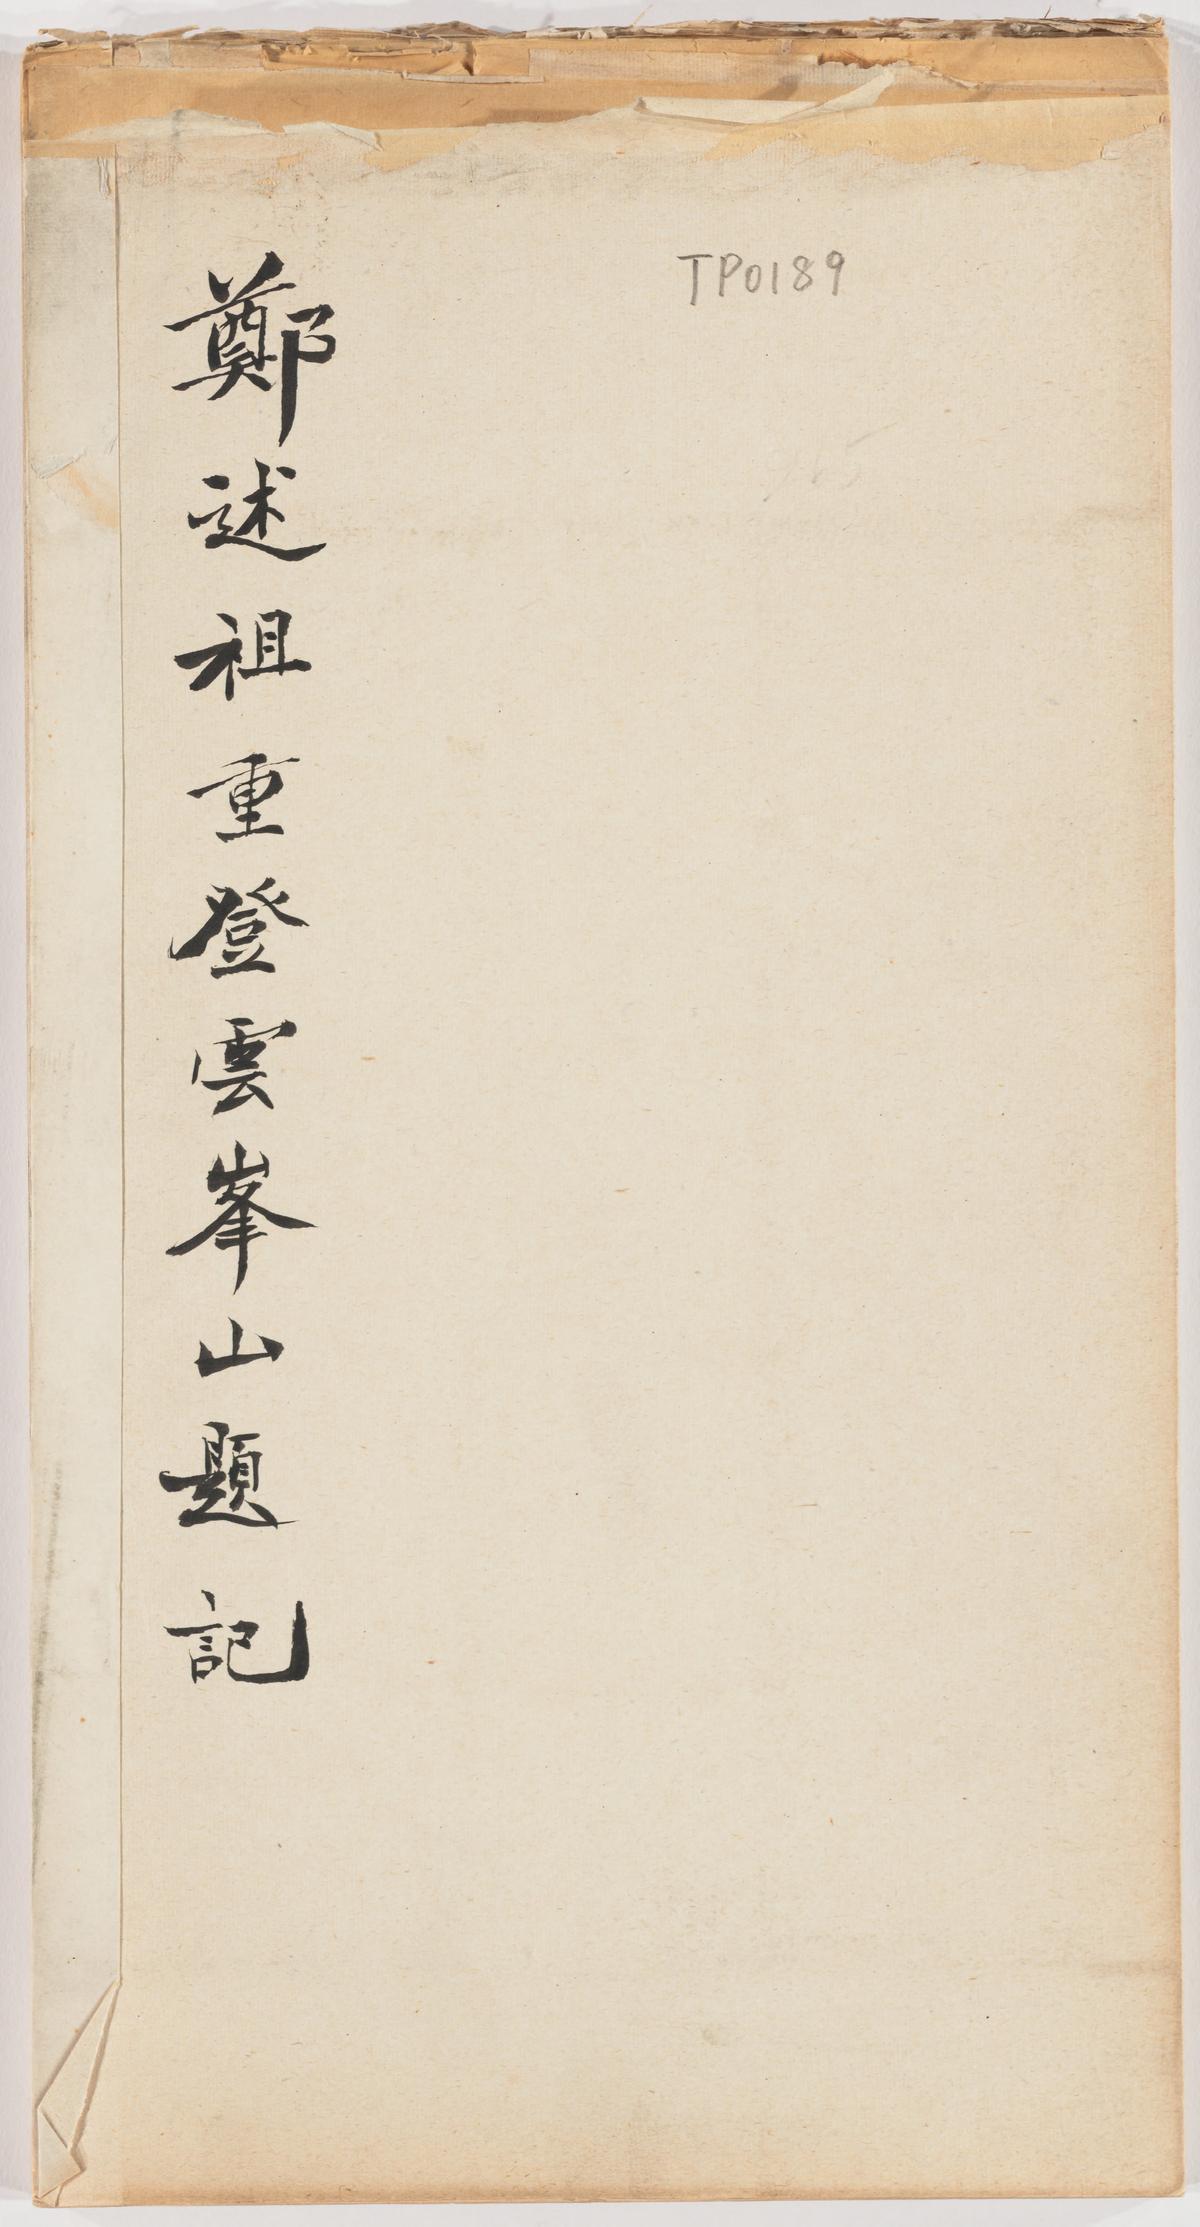 TP0189
鄭述祖重登雲峯山題記